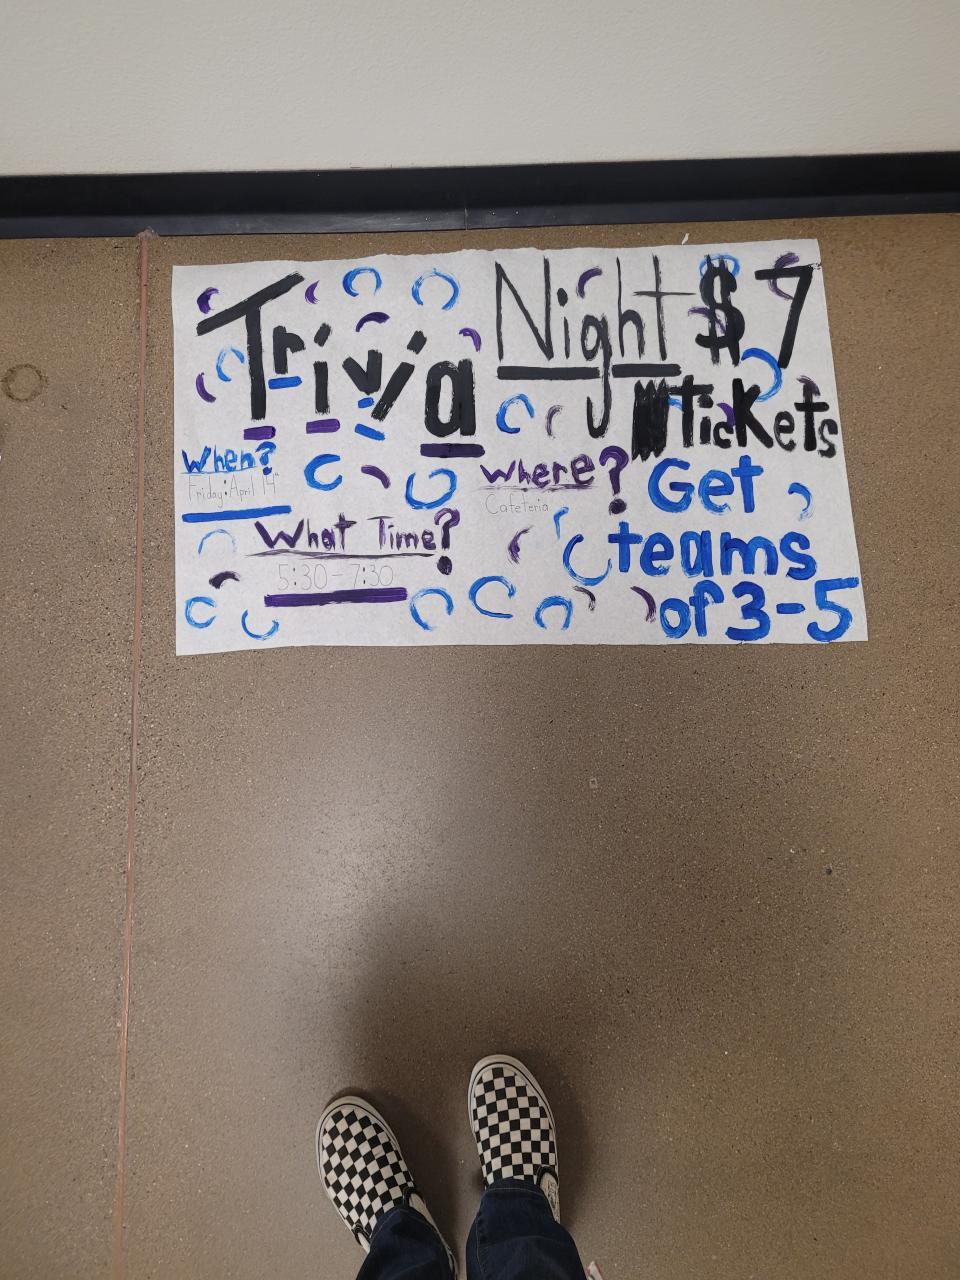 Trivia Night $7
Tickets
When?
Friday: April 14th
What Time?
5:30-7:30
Where?
Cafeteria
Get
teams
of 3-5